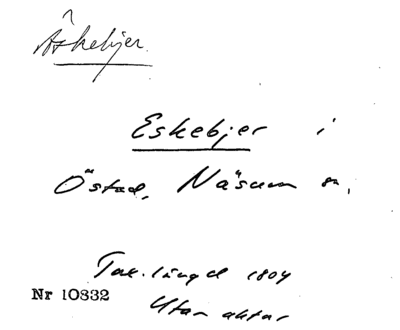 Äskebjer
Eskebjer i
Östad, Näsum sn,
Tax.längd 1804
Nr 10832
Utan aktar